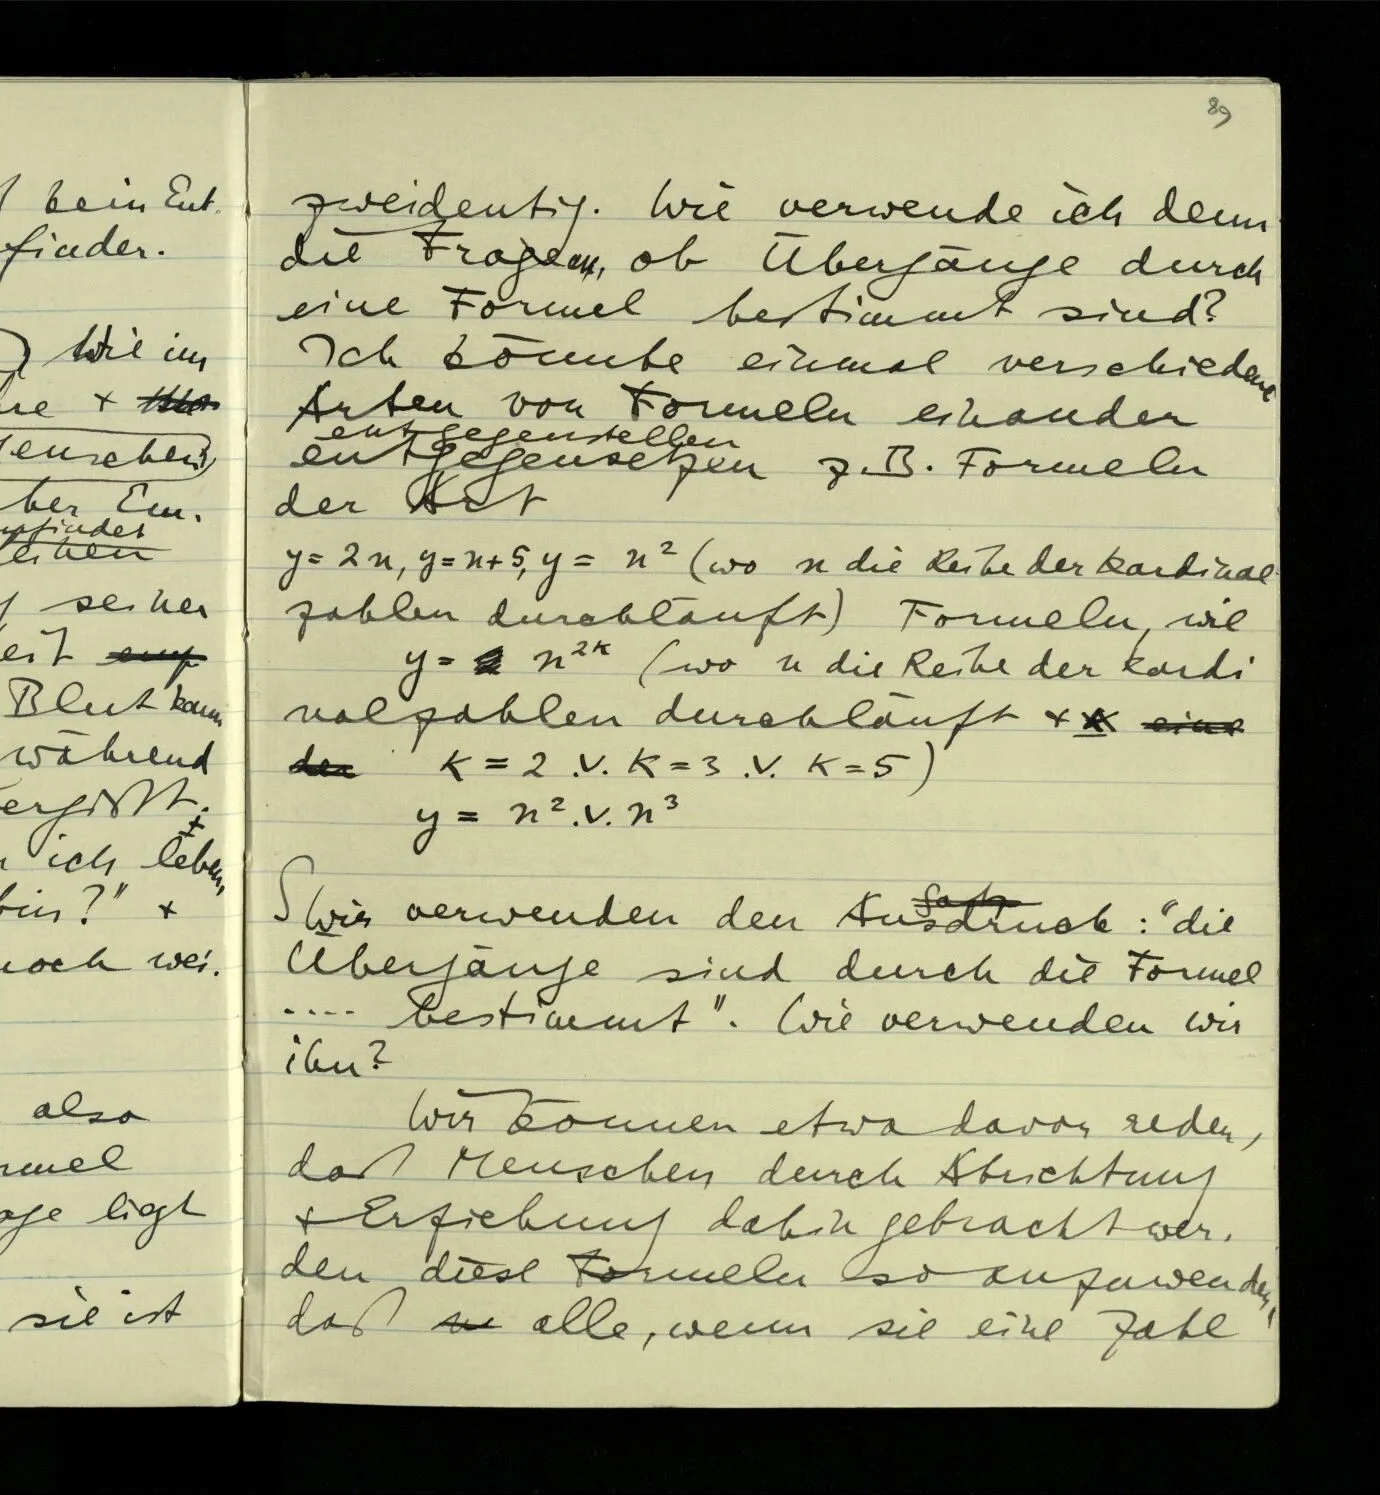 89
bein Ent-
finder.
Wie im
+
enschen
ber Em-
pfinder
seiner
Blut kann
während
ich leben,
bin?" +
noch wei-
also
liegt
sie ist
zweideutig. Wie verwende ich denn
die Fragen, ob Übergänge durch
eine Formel bestimmt sind?
Ich könnte einmal verschiedene
Arten von Formeln einander
entgegenstellen
entgegensetzen z.B. Formeln
der Art
y = 2n, y = n+5, y = n² (wo n die Reihe der Kardinal-
zahlen durchläuft) Formeln, wie
y = n²ᴷ (wo n die Reihe der Kardi
nalzahlen durchläuft + K eine
der K = 2 .v. K = 3 .v. K = 5)
y = n² .v. n³
∫ Wir verwenden den Ausdruck: "die
Satz
Übergänge sind durch die Formel
.... bestimmt". Wie verwenden wir
ihn?
Wir können etwa davon reden,
daß Menschen durch Abrichtung
+ Erziehung dahin gebracht wer-
den diese Formeln so anzuwenden,
daß alle, wenn sie eine Zahl